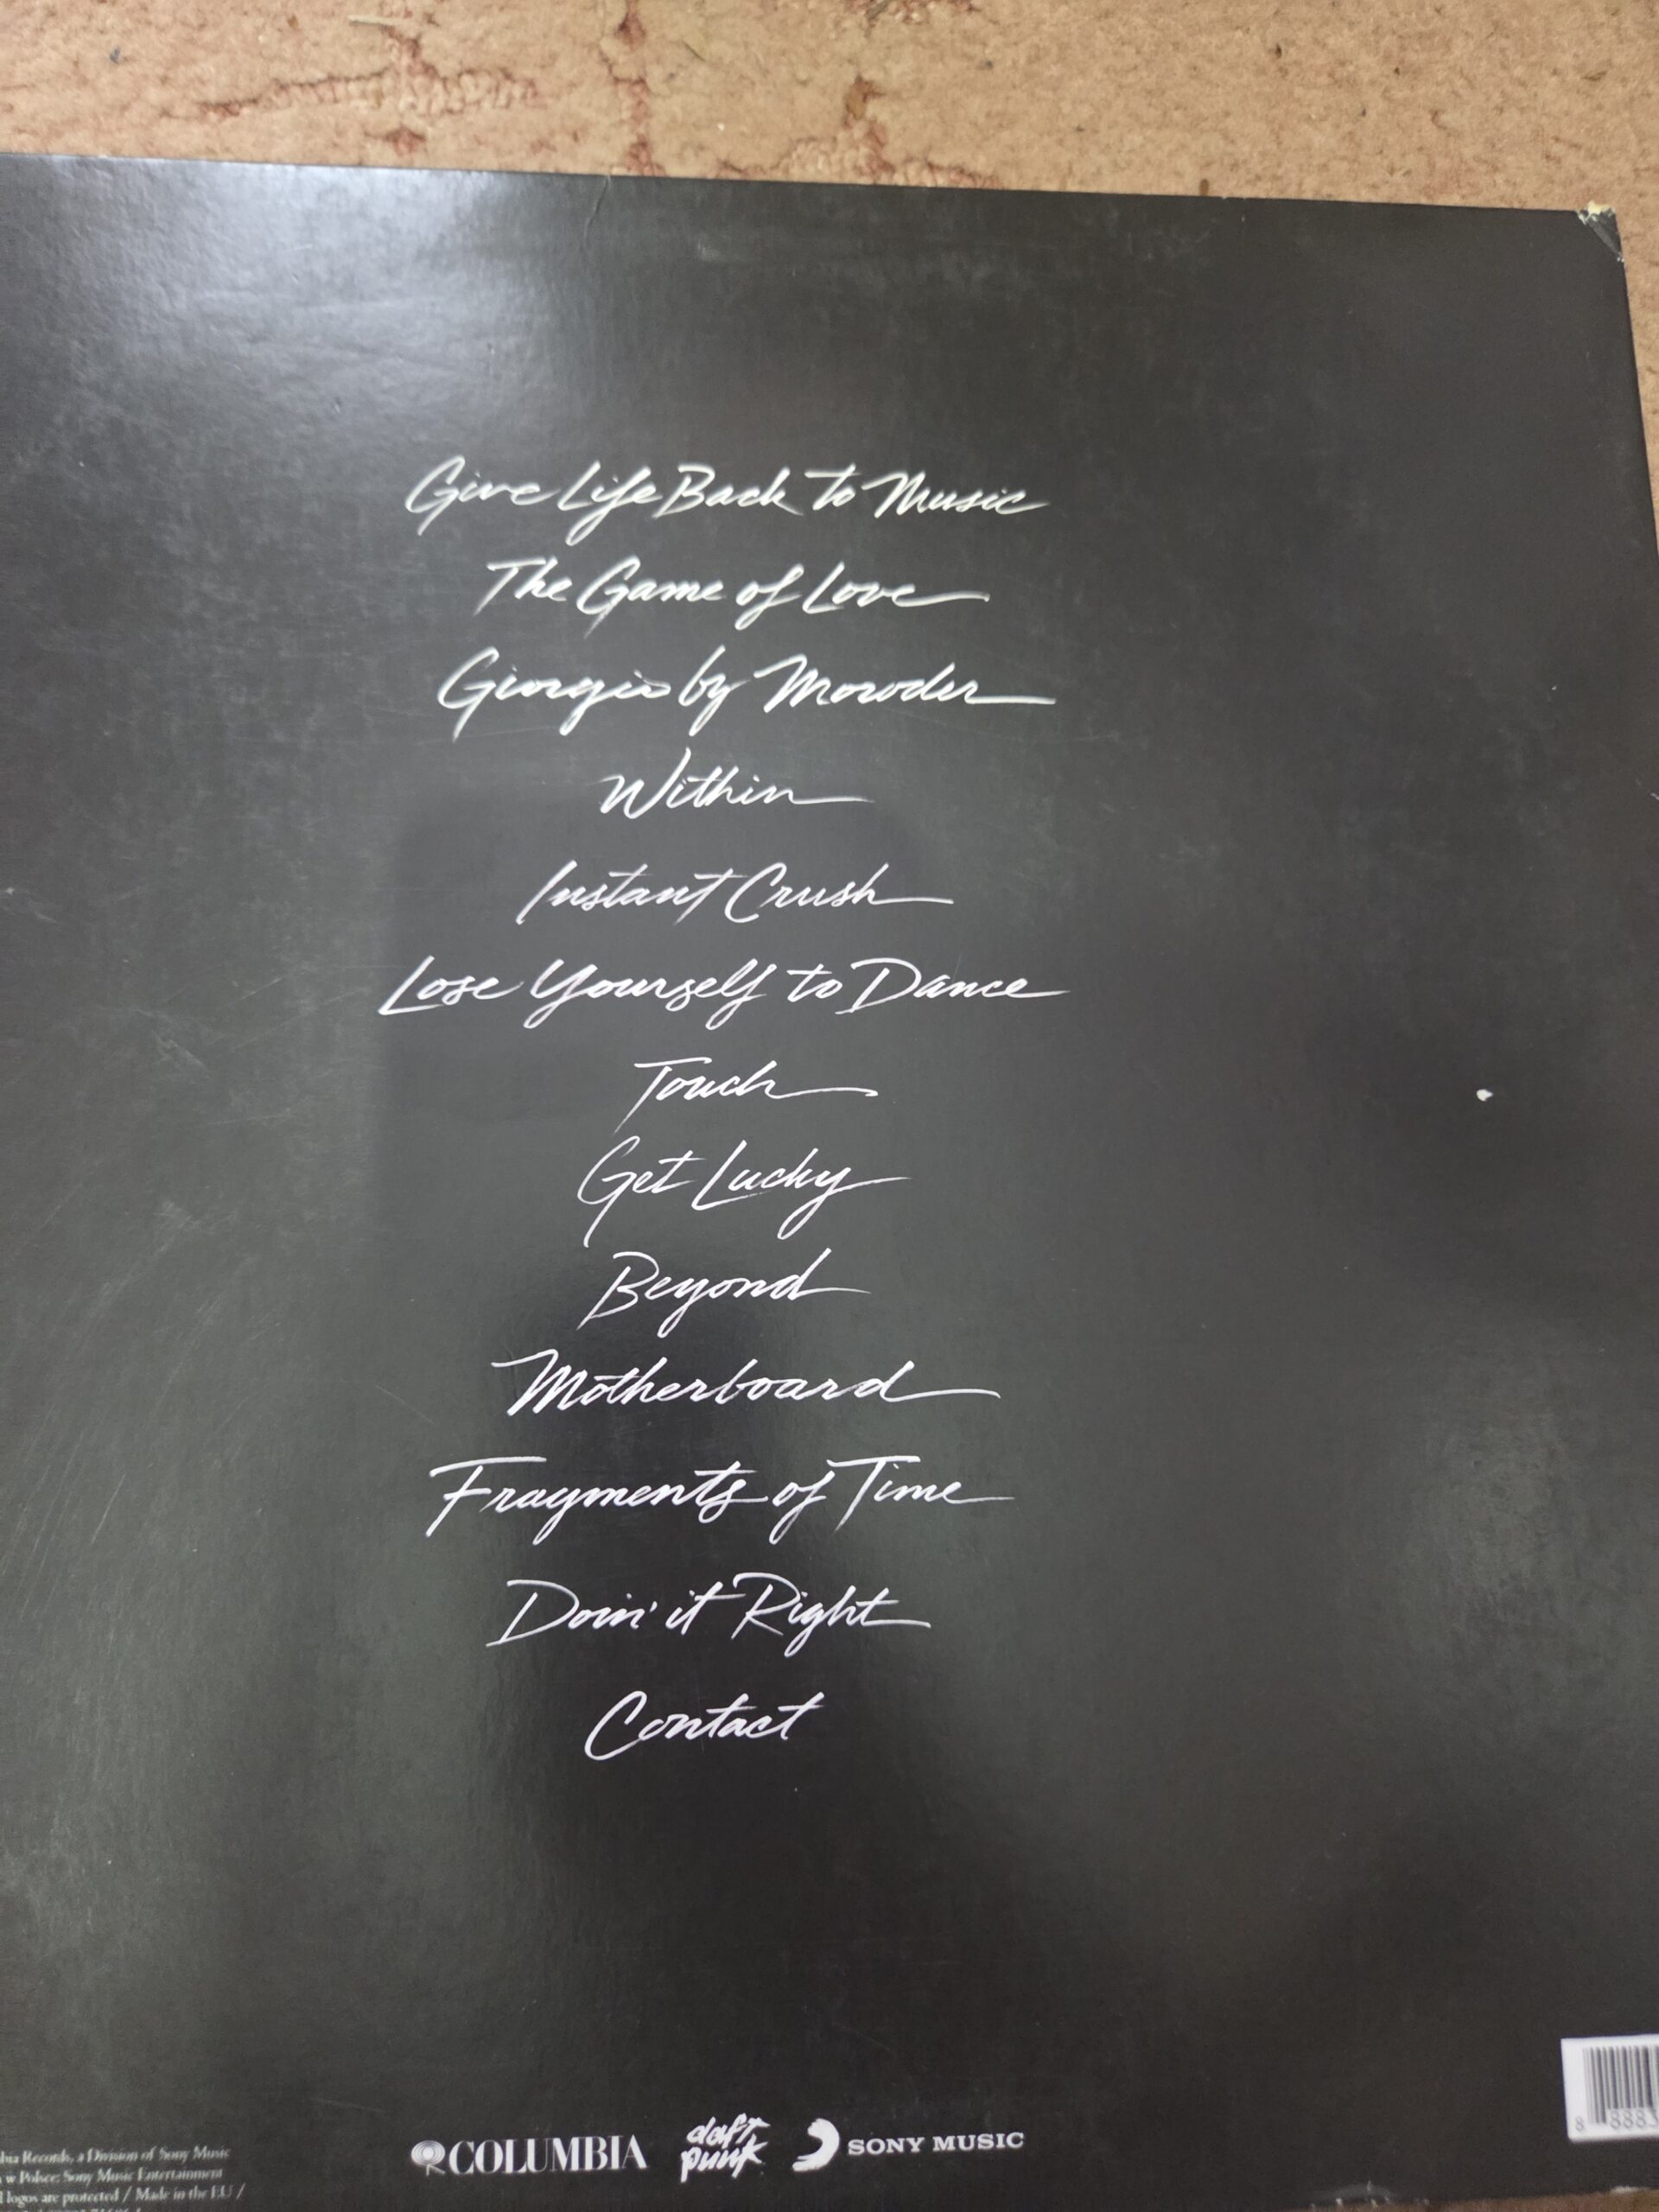 Give Life Back to Music
The Game of Love
Giorgio by Moroder
Within
Instant Crush
Lose Yourself to Dance
Touch
Get Lucky
Beyond
Motherboard
Fragments of Time
Doin' it Right
Contact
COLUMBIA
daft
punk
SONY MUSIC
bia Records, a Division of Sony Music
w Polsce: Sony Music Entertainment
logos are protected / Made in the EU /
8 8883